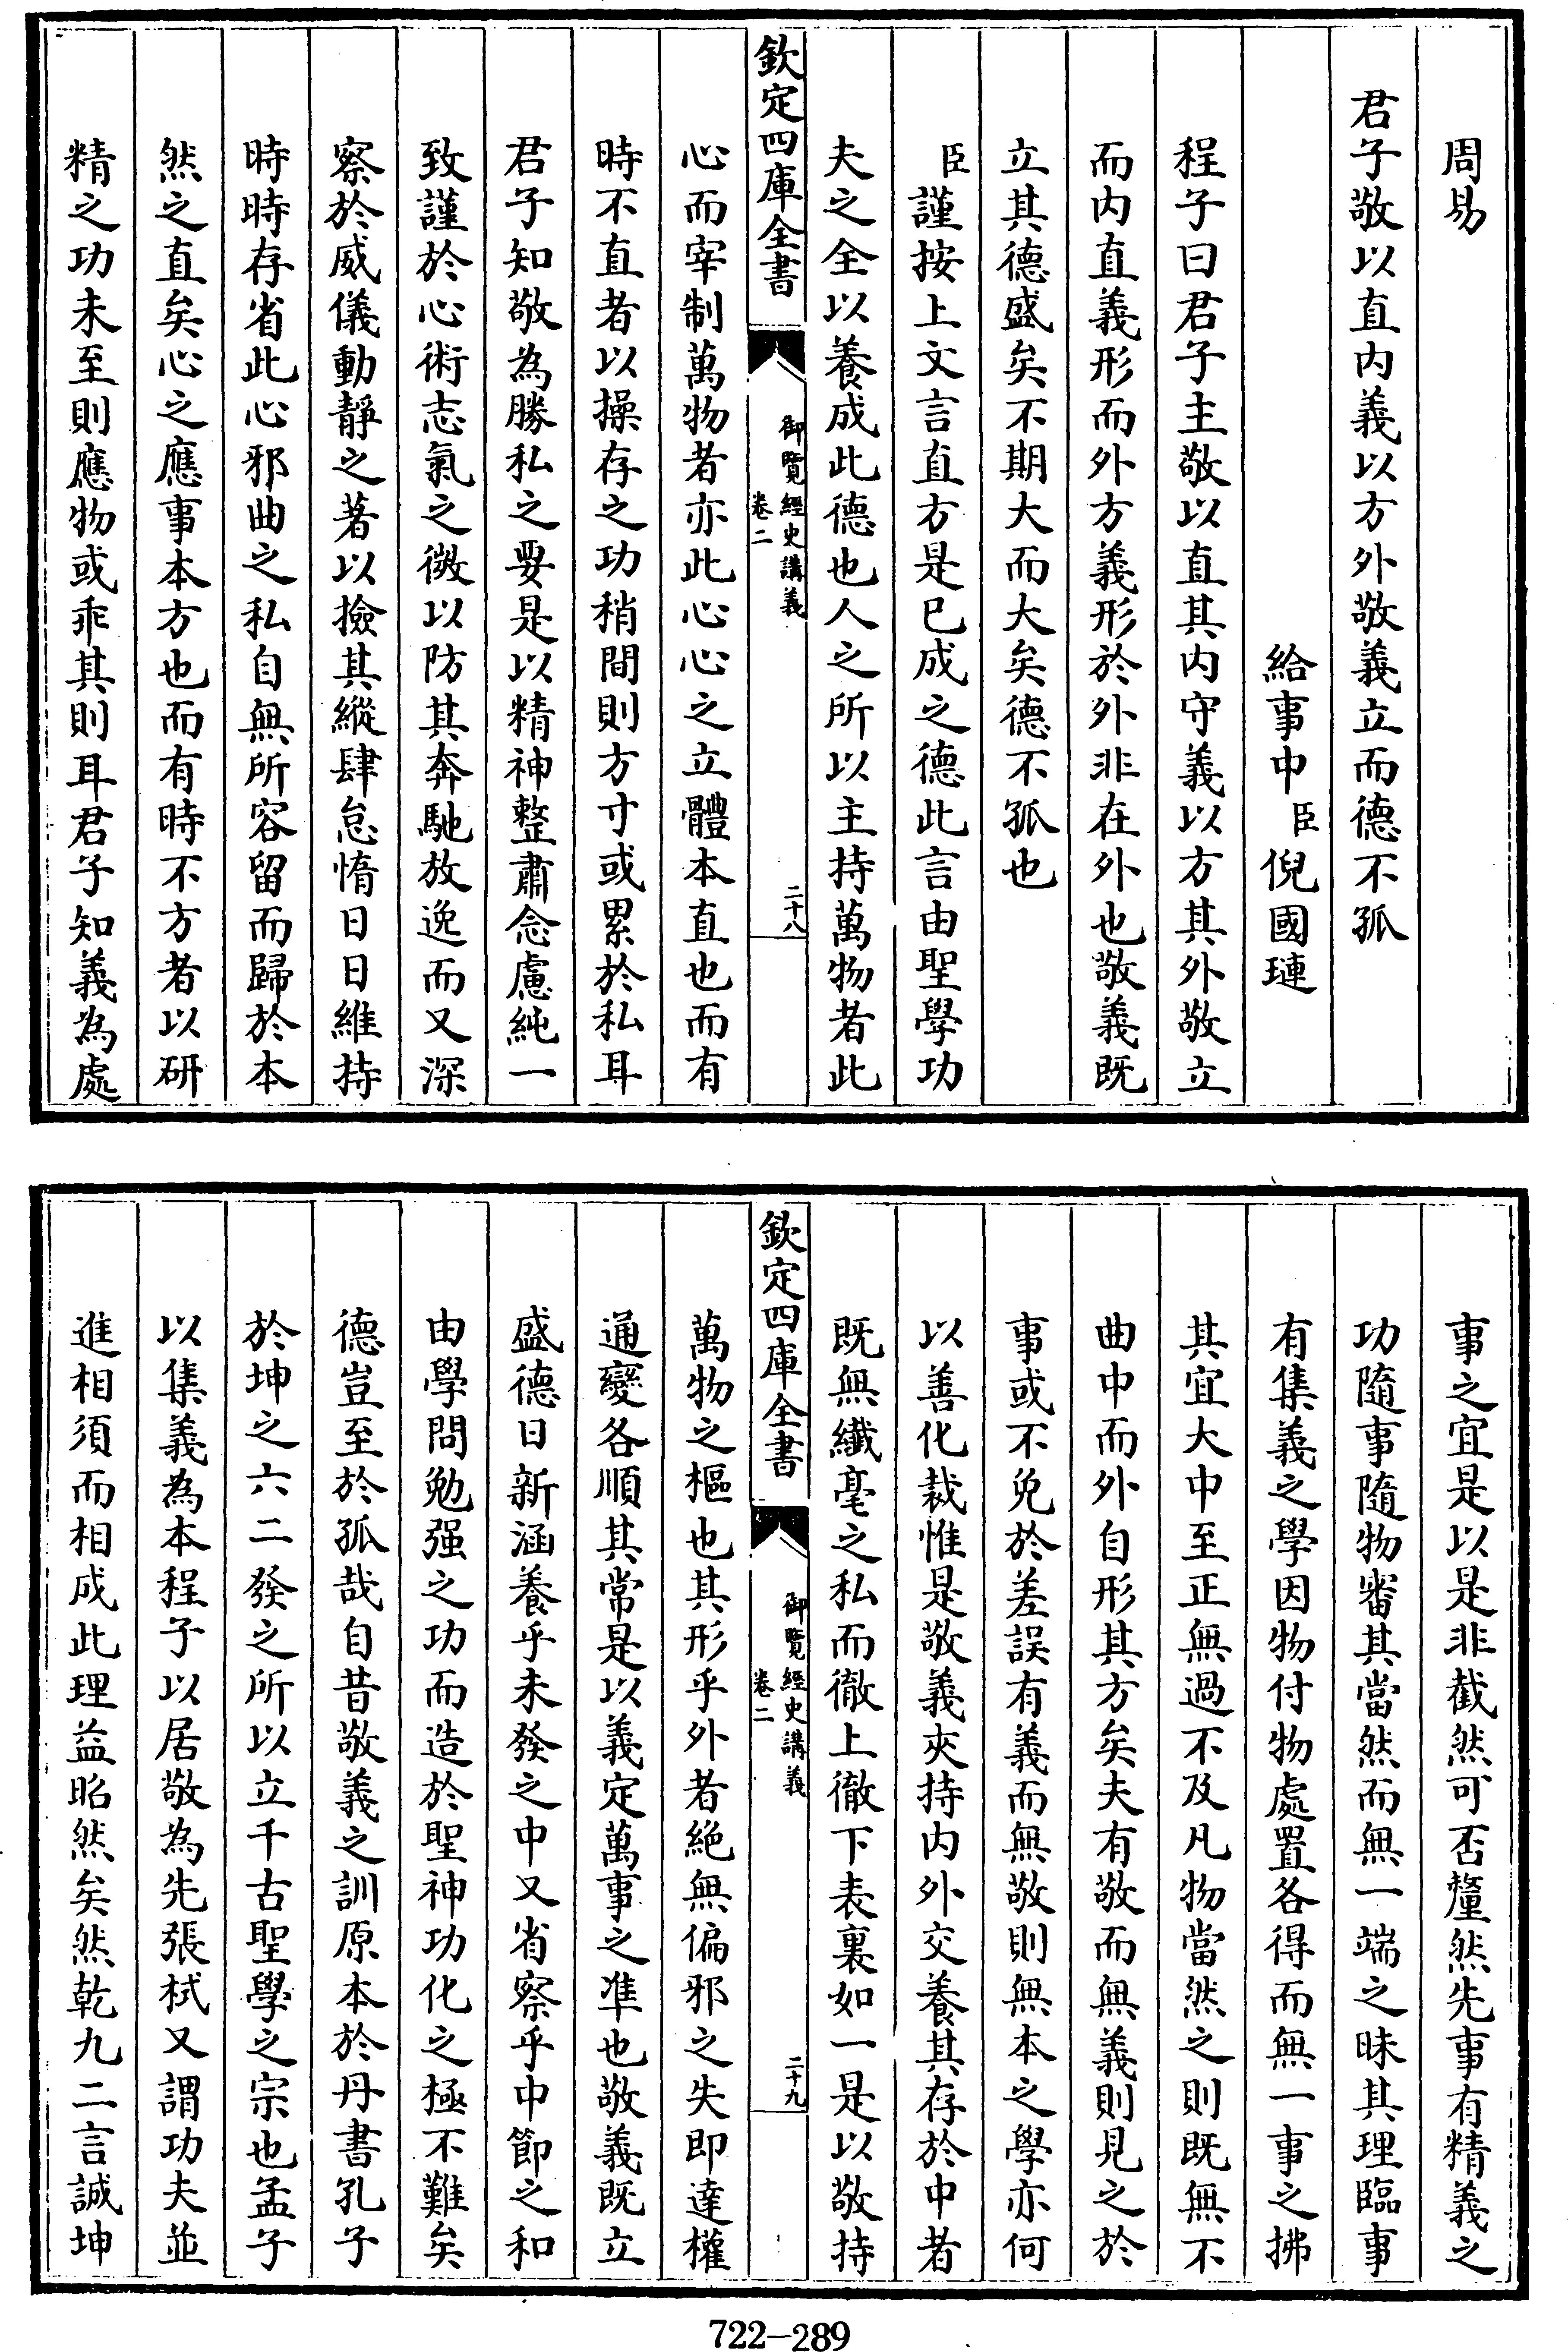 周易
君子敬以直内義以方外敬義立而德不孤
給事中臣倪國璉
程子曰君子主敬以直其内守義以方其外敬立
而内直義形而外方義形於外非在外也敬義既
立其德盛矣不期大而大矣德不孤也
臣謹按上文言直方是已成之德此言由聖學功
夫之全以養成此德也人之所以主持萬物者此
欽定四庫全書
御覽經史講義
卷二
二十八
心而宰制萬物者亦此心心之立體本直也而有
時不直者以操存之功稍間則方寸或累於私耳
君子知敬為勝私之要是以精神整肅念慮純一
致謹於心術志氣之微以防其奔馳放逸而又深
察於威儀動靜之著以撿其縱肆怠惰日日維持
時時存省此心邪曲之私自無所容留而歸於本
然之直矣心之應事本方也而有時不方者以研
精之功未至則應物或乖其則耳君子知義為處
事之宜是以是非截然可否釐然先事有精義之
功隨事隨物審其當然而無一端之昧其理臨事
有集義之學因物付物處置各得而無一事之拂
其宜大中至正無過不及凡物當然之則既無不
曲中而外自形其方矣夫有敬而無義則見之於
事或不免於差誤有義而無敬則無本之學亦何
以善化裁惟是敬義夾持内外交養其存於中者
既無纎毫之私而徹上徹下表裏如一是以敬持
欽定四庫全書
御覽經史講義
卷二
二十九
萬物之樞也其形乎外者絶無偏邪之失即達權
通變各順其常是以義定萬事之準也敬義既立
盛德日新涵養乎未發之中又省察乎中節之和
由學問勉强之功而造於聖神功化之極不難矣
德豈至於孤哉自昔敬義之訓原本於丹書孔子
於坤之六二發之所以立千古聖學之宗也孟子
以集義為本程子以居敬為先張栻又謂功夫並
進相須而相成此理益昭然矣然乾九二言誠坤
722-289